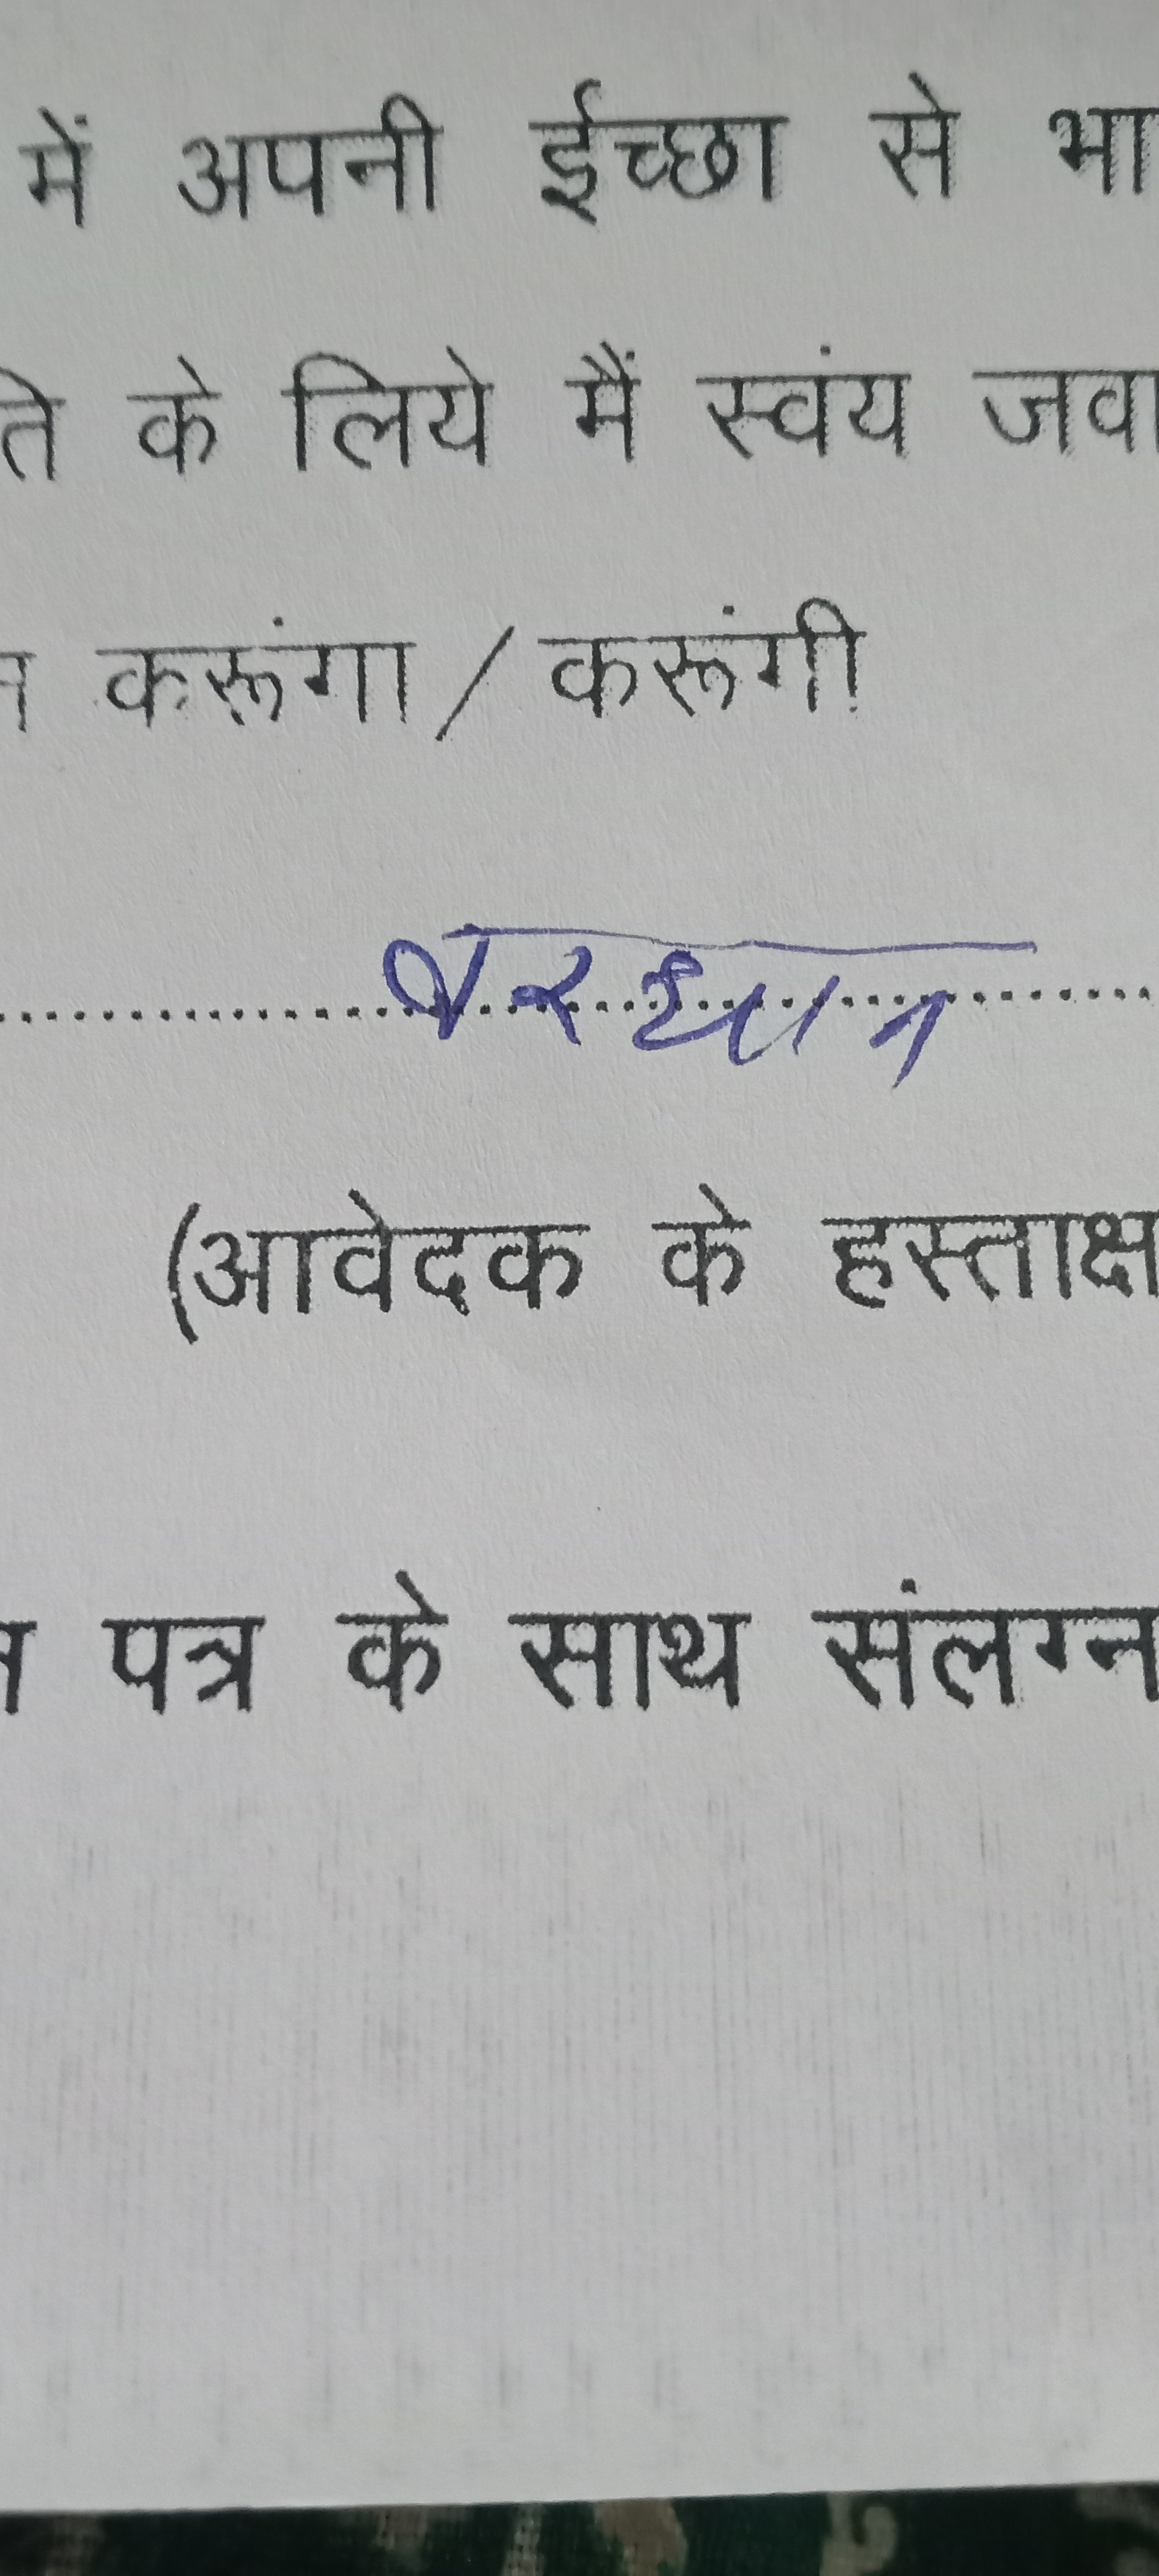 में अपनी ईच्छा से भा
ते के लिये मैं स्वंय जवा
न करूंगा/करूंगी
(आवेदक के हस्ताक्ष
न पत्र के साथ संलग्न